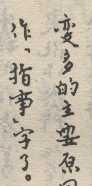 变多的主要原因
作、「指事」字了。